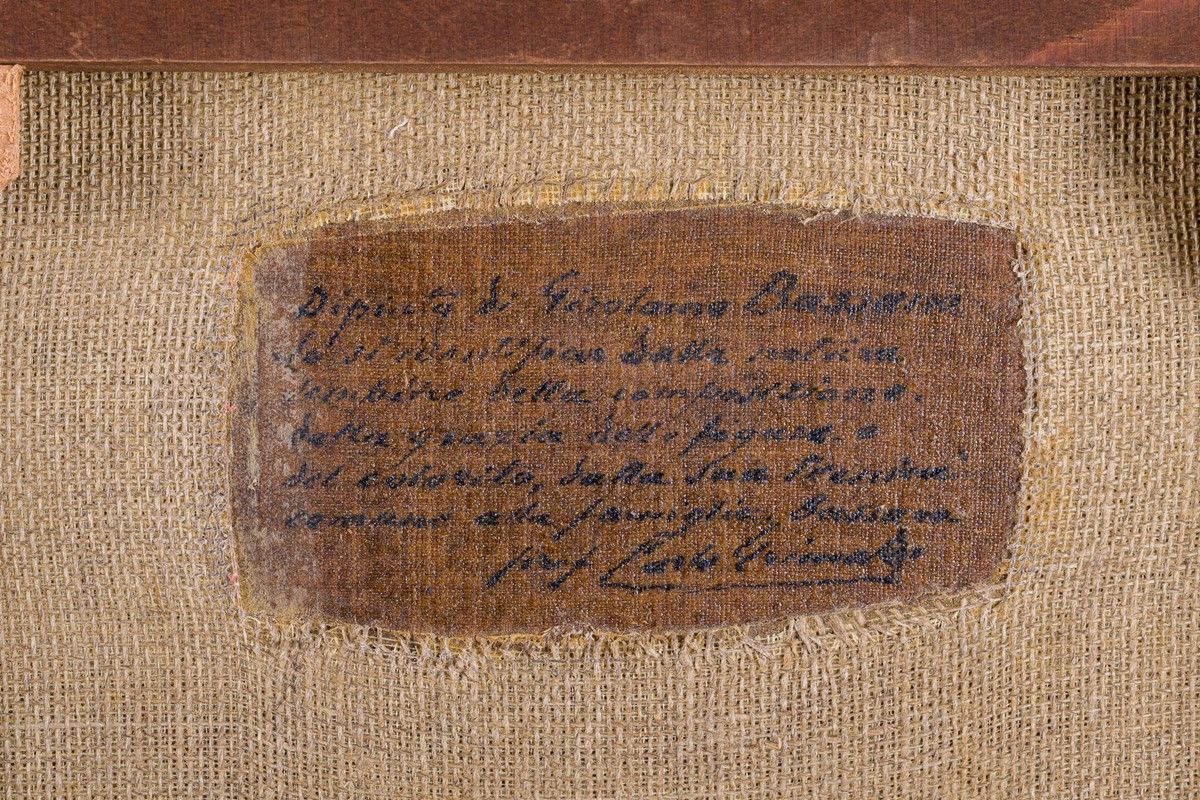 Dipinto di Girolamo Bassano
Lo si identifica dalla
della composizione.
dalla grazia delle figure e
del colorito, dalla sua
comune alla famiglia Bassano
prof Carlo Grimaldi